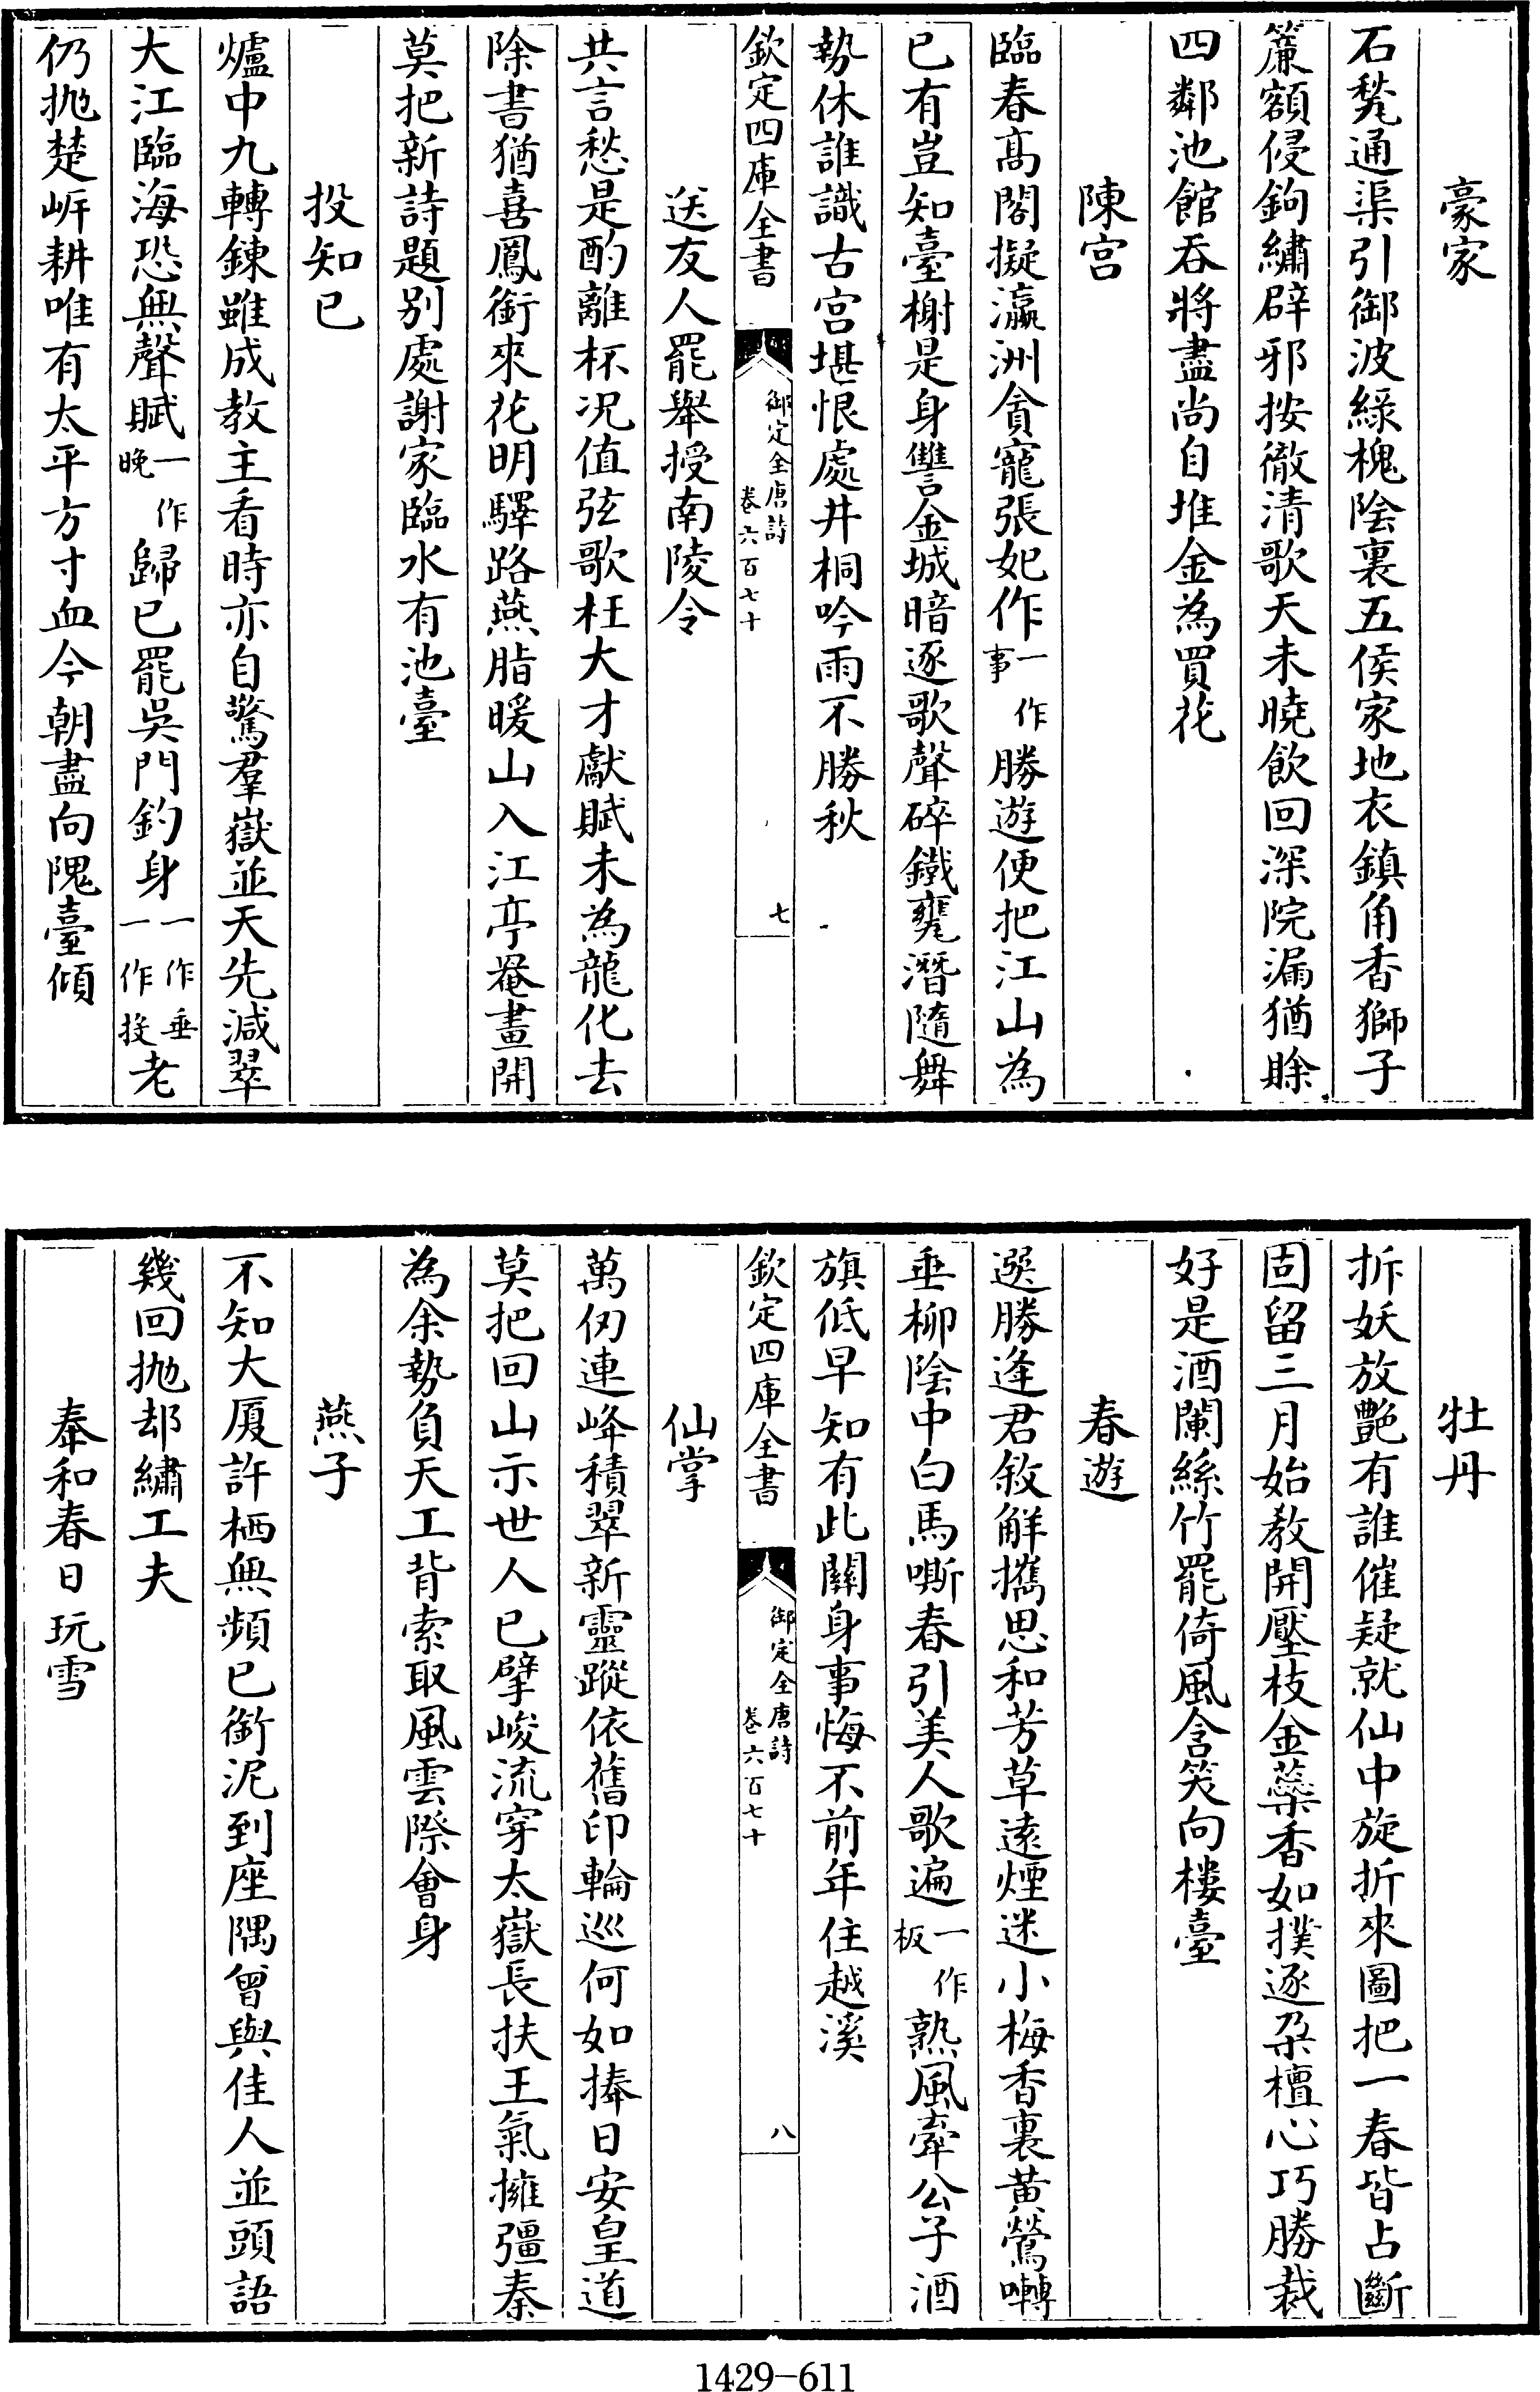 豪家
石甃通渠引御波綠槐陰裏五侯家地衣鎮角香獅子
簾額侵鉤繡辟邪按徹清歌天未曉飲回深院漏猶賖
四鄰池館吞將盡尚自堆金為買花
陳宮
臨春髙閣擬瀛洲貪寵張妃作一作事勝遊便把江山為
已有豈知臺榭是身讐金城暗逐歌聲碎鐵甕潛隨舞
勢休誰識古宫堪恨處井桐吟雨不勝秋
欽定四庫全書
御定全唐詩
卷六百七十
七
送友人罷舉授南陵令
共言愁是酌離杯况值弦歌枉大才獻賦未為龍化去
除書猶喜鳳銜來花明驛路燕脂暖山入江亭罨畫開
莫把新詩題别處謝家臨水有池臺
投知已
爐中九轉鍊雖成教主看時亦自驚羣嶽並天先減翠
大江臨海恐無聲賦一作晚歸已罷吳門釣身一作垂一作投老
仍抛楚岸耕唯有太平方寸血今朝盡向隗臺傾
牡丹
拆妖放艷有誰催疑就仙中旋折來圖把一春皆占斷
固留三月始教開壓枝金蘂香如撲逐朶檀心巧勝裁
好是酒闌絲竹罷倚風含笑向樓臺
春遊
選勝逢君敘解攜思和芳草遠煙迷小梅香裏黄鶯囀
垂柳陰中白馬嘶春引美人歌遍一作板熟風牽公子酒
旗低早知有此關身事悔不前年住越溪
欽定四庫全書
御定全唐詩
卷六百七十
八
仙掌
萬仞連峰積翠新靈蹤依舊印輪巡何如捧日安皇道
莫把回山示世人已擘峻流穿太嶽長扶王氣擁彊秦
為余勢負天工背索取風雲際會身
燕子
不知大厦許栖無頻已銜泥到座隅曾與佳人並頭語
幾回抛却繡工夫
奉和春日玩雪
1429-611